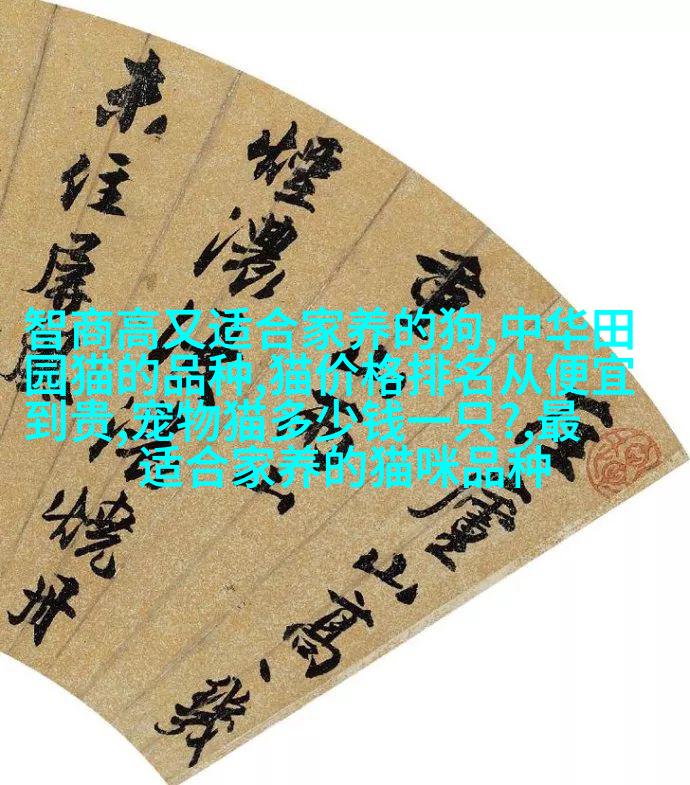 智商高又适合家养的狗,中华田
园猫的品种,猫价格排名从便宜
到贵,宠物猫多少钱一只?,最
适合家养的猫咪品种
廬山高發
煙濃燒丹
未住屏